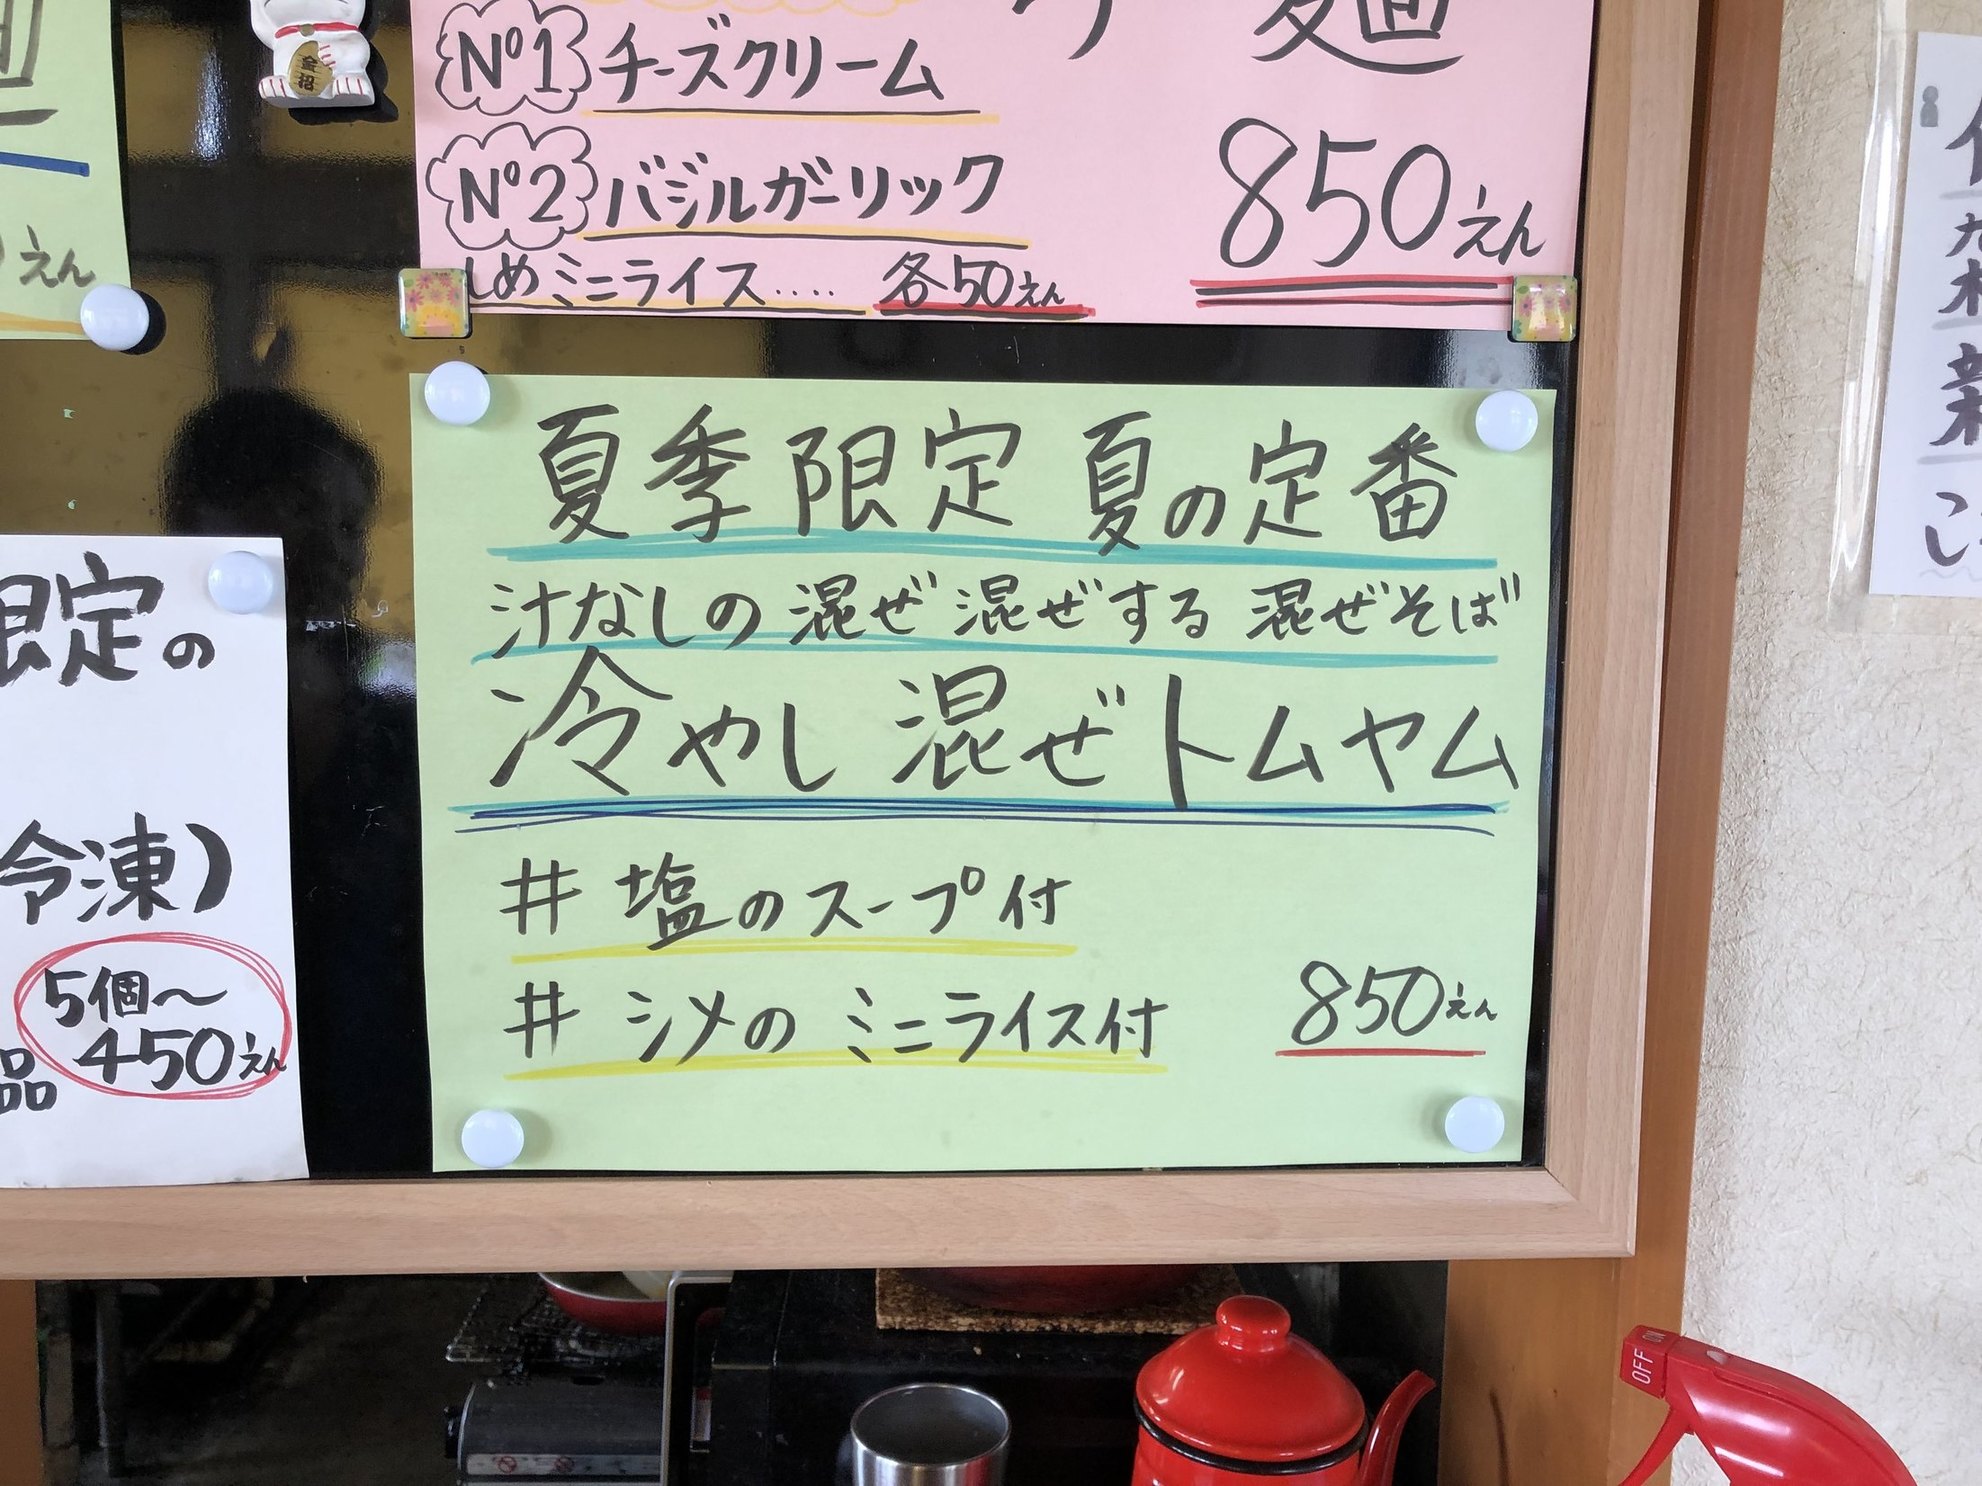 金招
麺
Nº1 チーズクリーム
Nº2 バジルガーリック
850えん
しめミニライス.... 各50えん
えん
夏季限定 夏の定番
汁なしの混ぜ混ぜする 混ぜそば
冷やし混ぜトムヤム
# 塩のスープ付
# シメの ミニライス付
850えん
限定の
冷凍)
5個〜
450えん
品
OFF